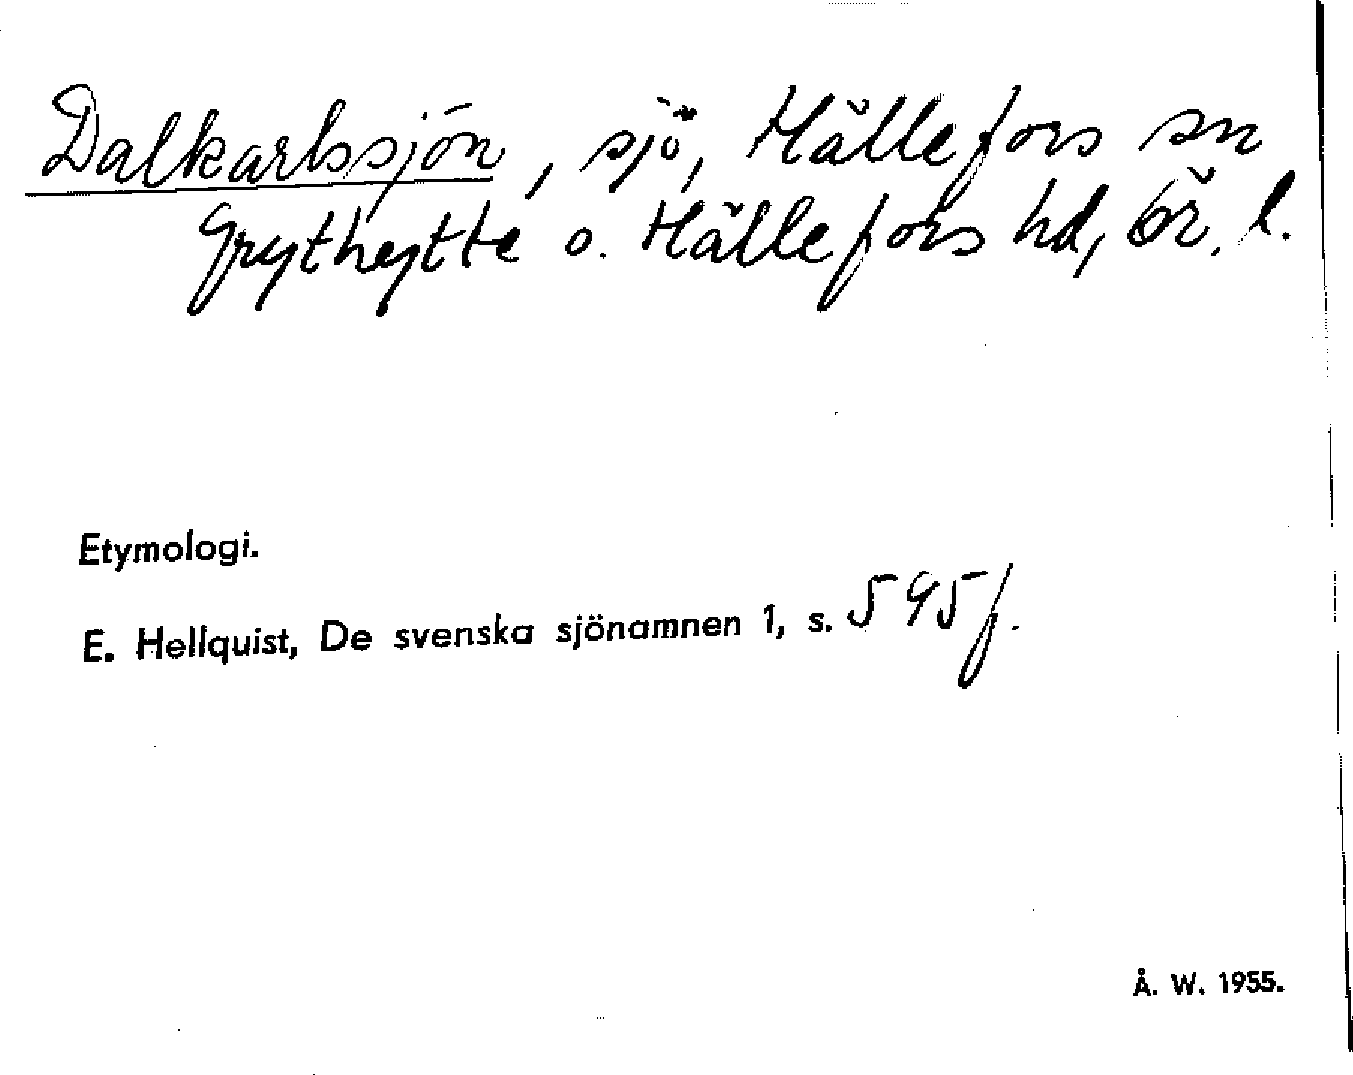 Dalkarlssjön, sjö, Hällefors sn
Grythytte o. Hällefors hd, Ör. l.
Etymologi.
E. Hellquist, De svenska sjönamnen 1, s. 595 f.
Å. W. 1955.